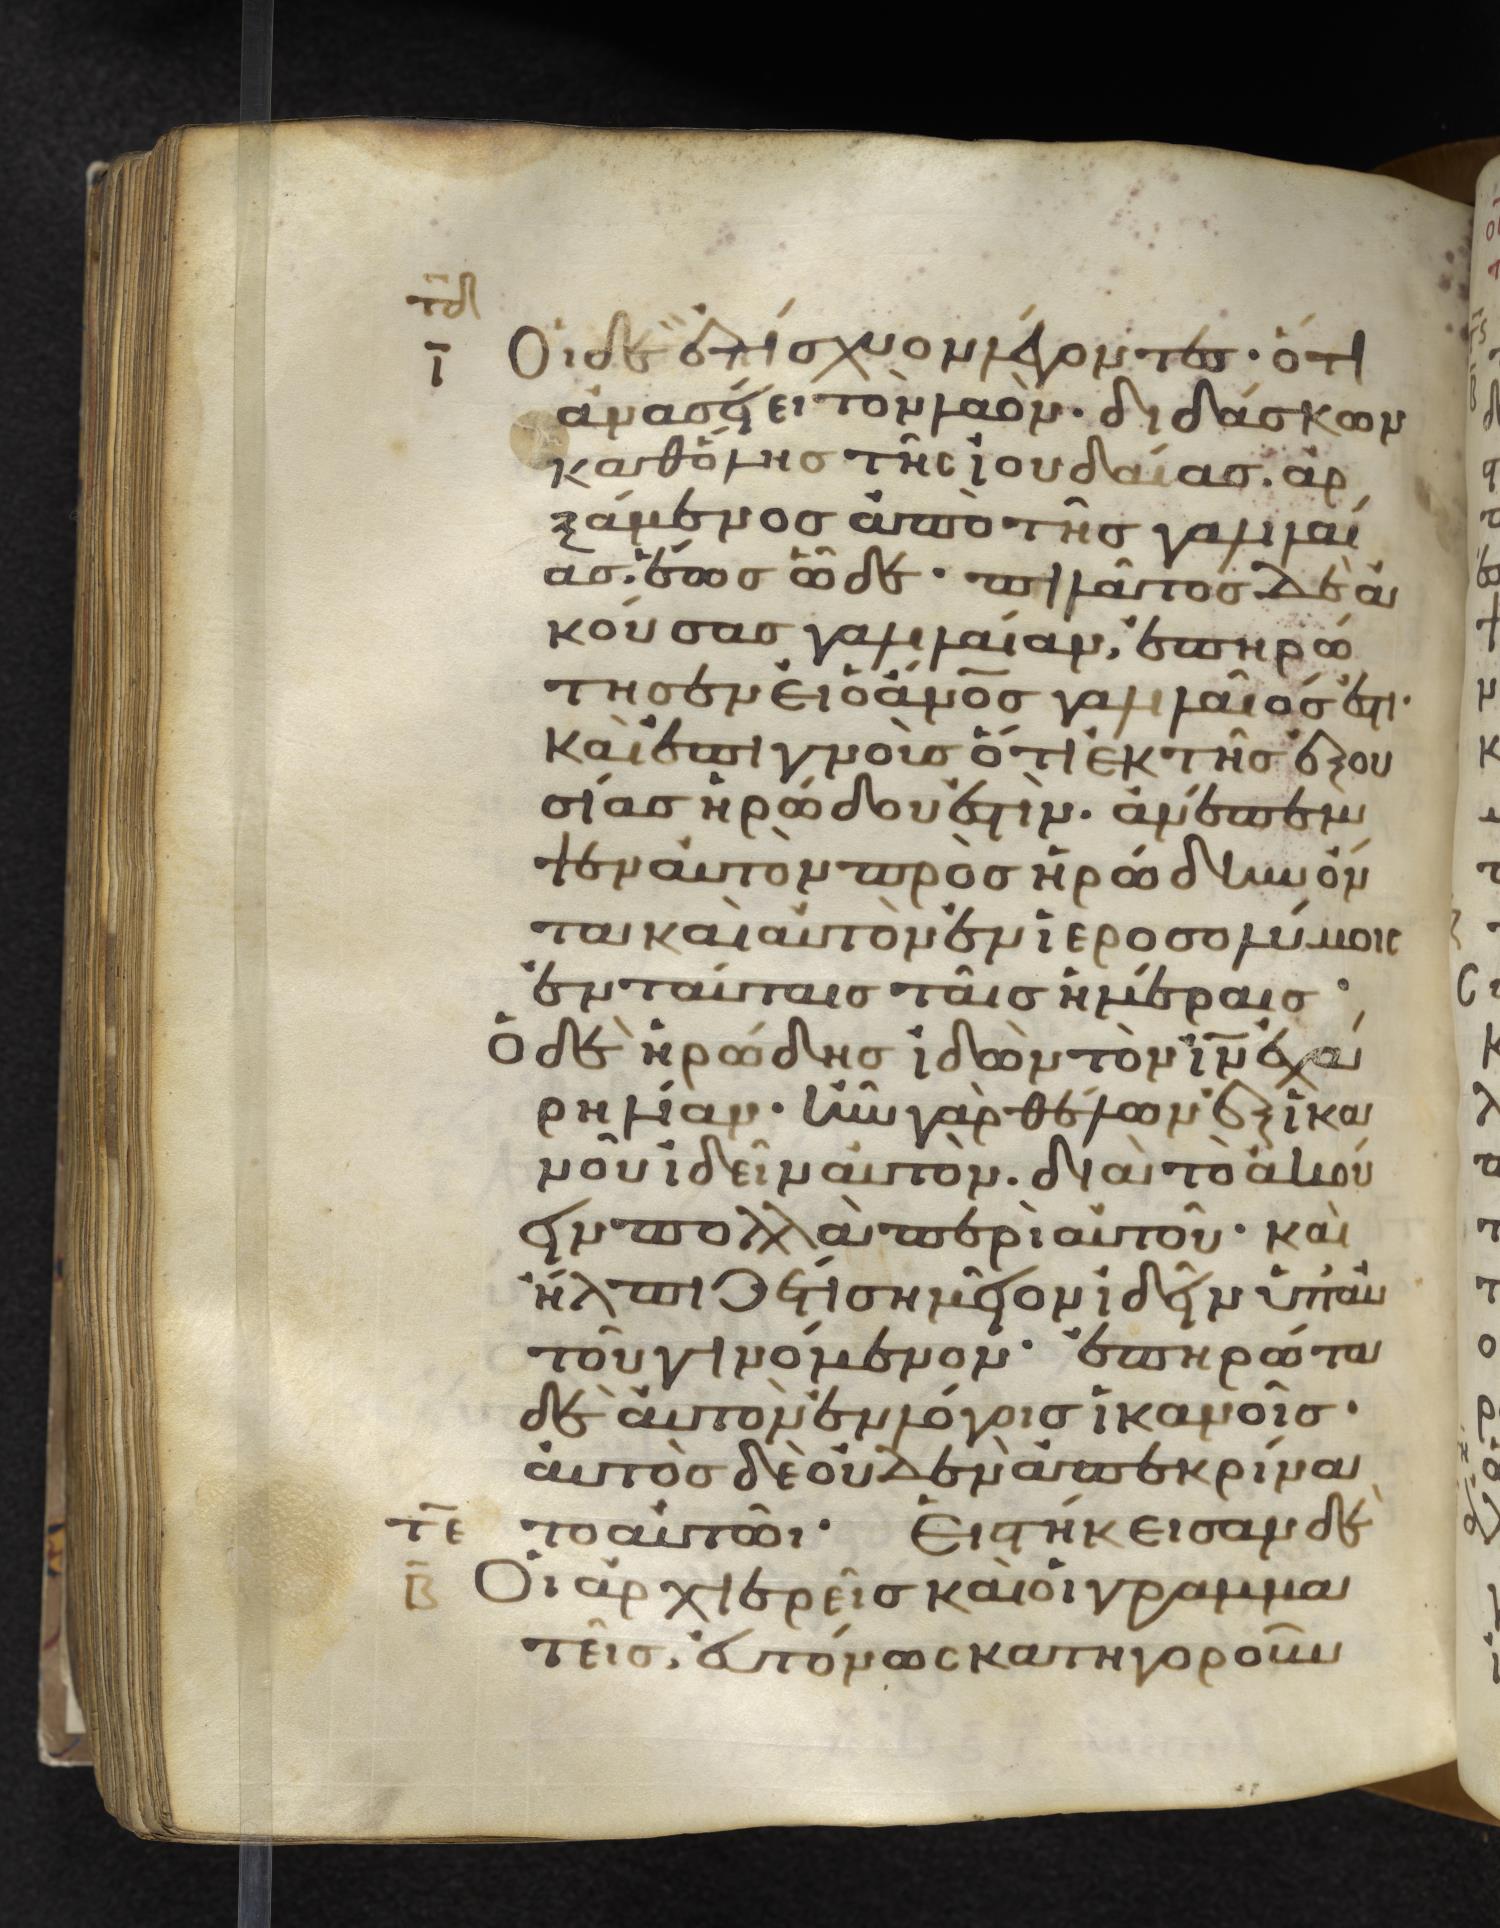 τδ
ι Οι δὲ ἐπίσχυον λέγοντες· ὅτι
ἀνασείει τὸν λαὸν· διδάσκων
καθόλης τῆς ἰουδαίας. ἀρ
ξάμενος ἀπὸ τῆς γαλιλαί
ας. ἕως ὧδε· πιλᾶτος δὲ ἀ
κούσας γαλιλαίαν, ἐπηρώ
τησεν εἰ ὁ ἄνος γαλιλαῖός ἐστι·
καὶ ἐπιγνοὺς ὅτι ἐκ τῆς ἐξου
σίας ἡρώδου ἐστὶν· ἀνέπεμ
ψεν αὐτὸν πρὸς ἡρώδην ὄν
τα καὶ αὐτὸν ἐν ἱεροσολύμοις
ἐν ταύταις ταῖς ἡμέραις·
Ὁ δὲ ἡρώδης ἰδὼν τὸν ιν ἐχά
ρη λίαν· ἦν γὰρ θέλων ἐξ ἱκα
νοῦ ἰδεῖν αὐτὸν· διὰ τὸ ἀκού
ειν πολλὰ περὶ αὐτοῦ· καὶ
ἤλπιζέ τι σημεῖον ἰδεῖν ὑπ' αὐ
τοῦ γινόμενον· ἐπηρώτα
δὲ αὐτὸν ἐν λόγοις ἱκανοῖς·
αὐτὸς δὲ οὐδὲν ἀπεκρίνα
τε το αὐτῶι· Εἱστήκεισαν δὲ
β Οἱ ἀρχιερεῖς καὶ οἱ γραμμα
τεῖς, εὐτόνως κατηγοροῦν